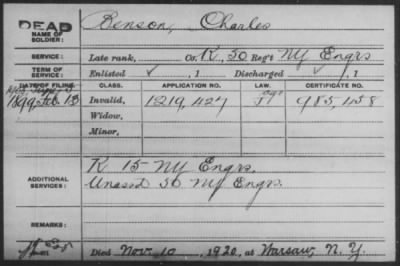 DEAD Benson, Charles
NAME OF SOLDIER:
SERVICE: Late rank, Co. K, 50 Reg't NY Engrs
TERM OF SERVICE: Enlisted , 1 Discharged , 1
DATE OF FILING. CLASS. APPLICATION NO. LAW. CERTIFICATE NO.
1899, Feb 13 Invalid, 1219,427 985,458
Widow,
Minor,
ADDITIONAL SERVICES: K 15 NY Engrs.
Unassd 50 NY Engrs.
REMARKS:
Died Nov. 10, 1920, at Warsaw, N. Y.